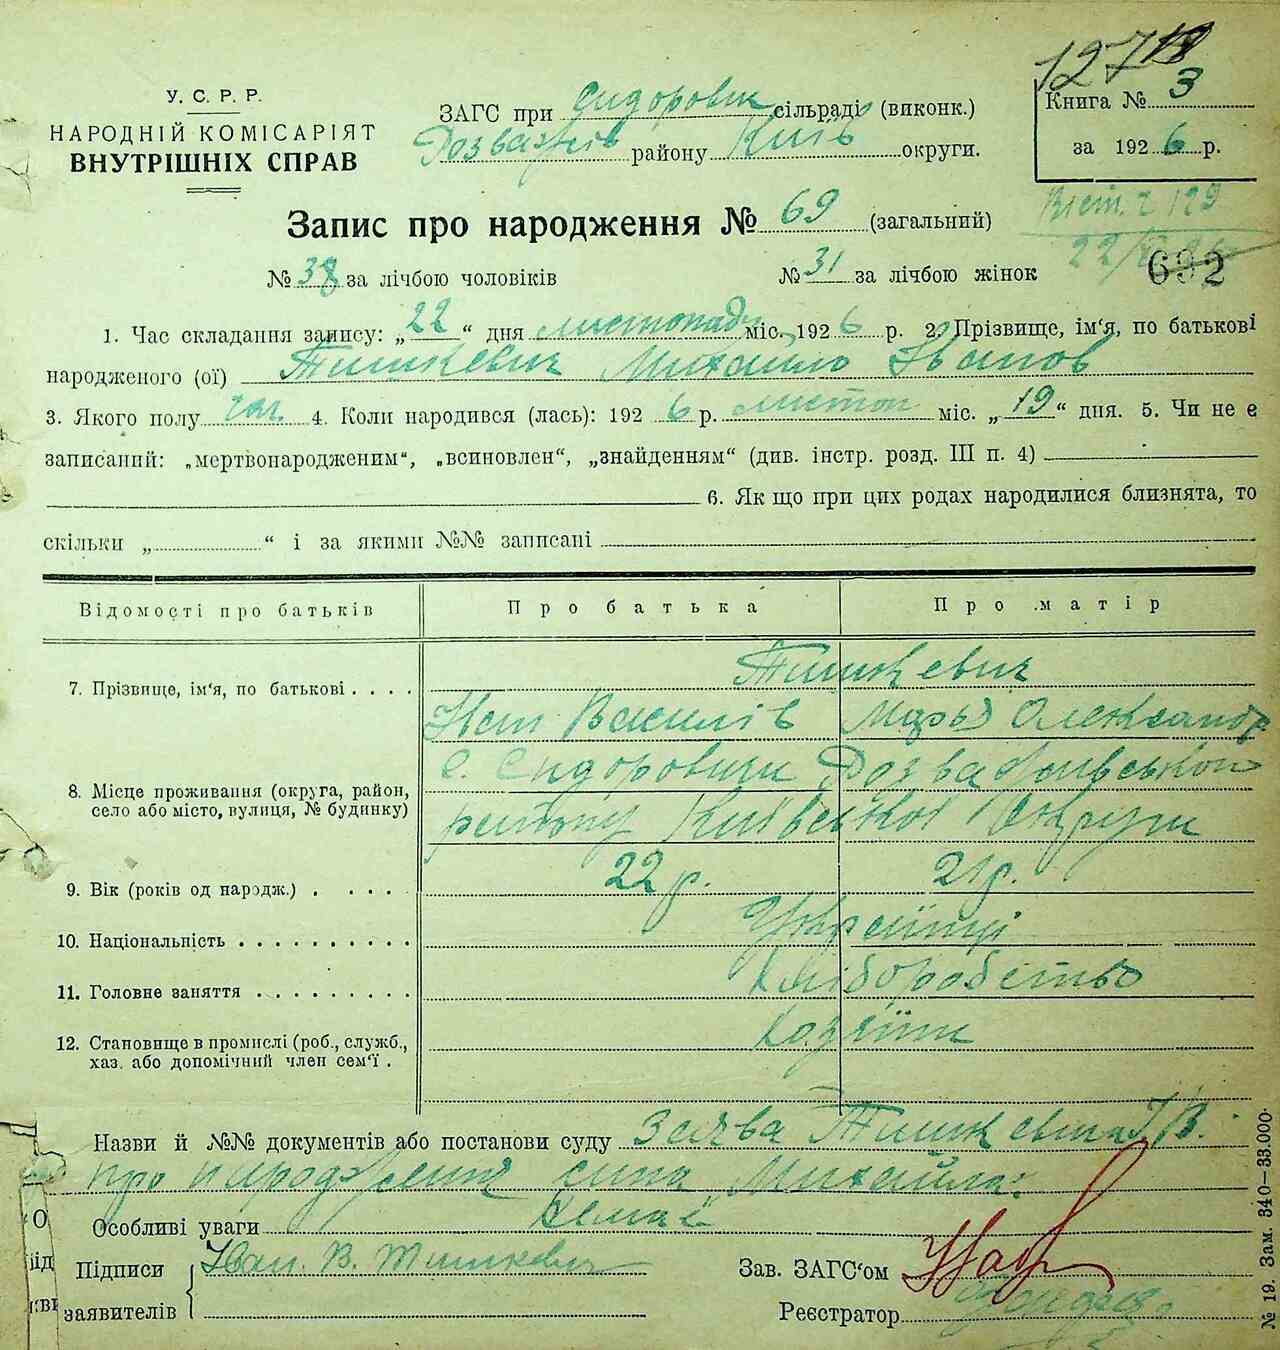 У. С. Р. Р.
НАРОДНІЙ КОМІСАРІЯТ
ВНУТРІШНІХ СПРАВ
ЗАГС при Сидоровиц сільраді (виконк.)
Розважів району Київ округи.
127
Книга № 3
за 1926 р.
Запис про народження № 69 (загальний)
Вист. 129
22/
692
№ 38 за лічбою чоловіків № 31 за лічбою жінок
1. Час складання запису: „22“ дня листопаду міс. 1926 р. 2. Прізвище, ім‘я, по батькові
народженого (ої) Тишкевич Михайло Іванов
3. Якого полу чол. 4. Коли народився (лась): 1926 р. листоп міс. „19“ дня. 5. Чи не є
записаний: „мертвонародженим“, „всиновлен“, „знайденням“ (див. інстр. розд. III п. 4)
6. Як що при цих родах народилися близнята, то
скільки „ “ і за якими №№ записані
Відомості про батьків Про батька Про матір
7. Прізвище, ім‘я, по батькові . . . . Тишкевич
Іван Василів Марья Олександр
8. Місце проживання (округа, район, село або місто, вулиця, № будинку) с. Сидоровичи Розважівського
району Київської Округи
9. Вік (років од народж.) . . . . . 22 р. 21 р.
10. Національність . . . . . . . . . . Українці
11. Головне заняття . . . . . . . . . Хліборобство
12. Становище в промислі (роб., служб., Хозяїни
хаз. або допомічний член сем‘ї .
Назви й №№ документів або постанови суду Заява Тишкевича І. В.
про народження сина Михайла.
Особливі уваги Немає
Підписи заявителів Іван. В. Тишкевич
Зав. ЗАГС‘ом
Реєстратор
№ 19. Зам. 340—33.000.